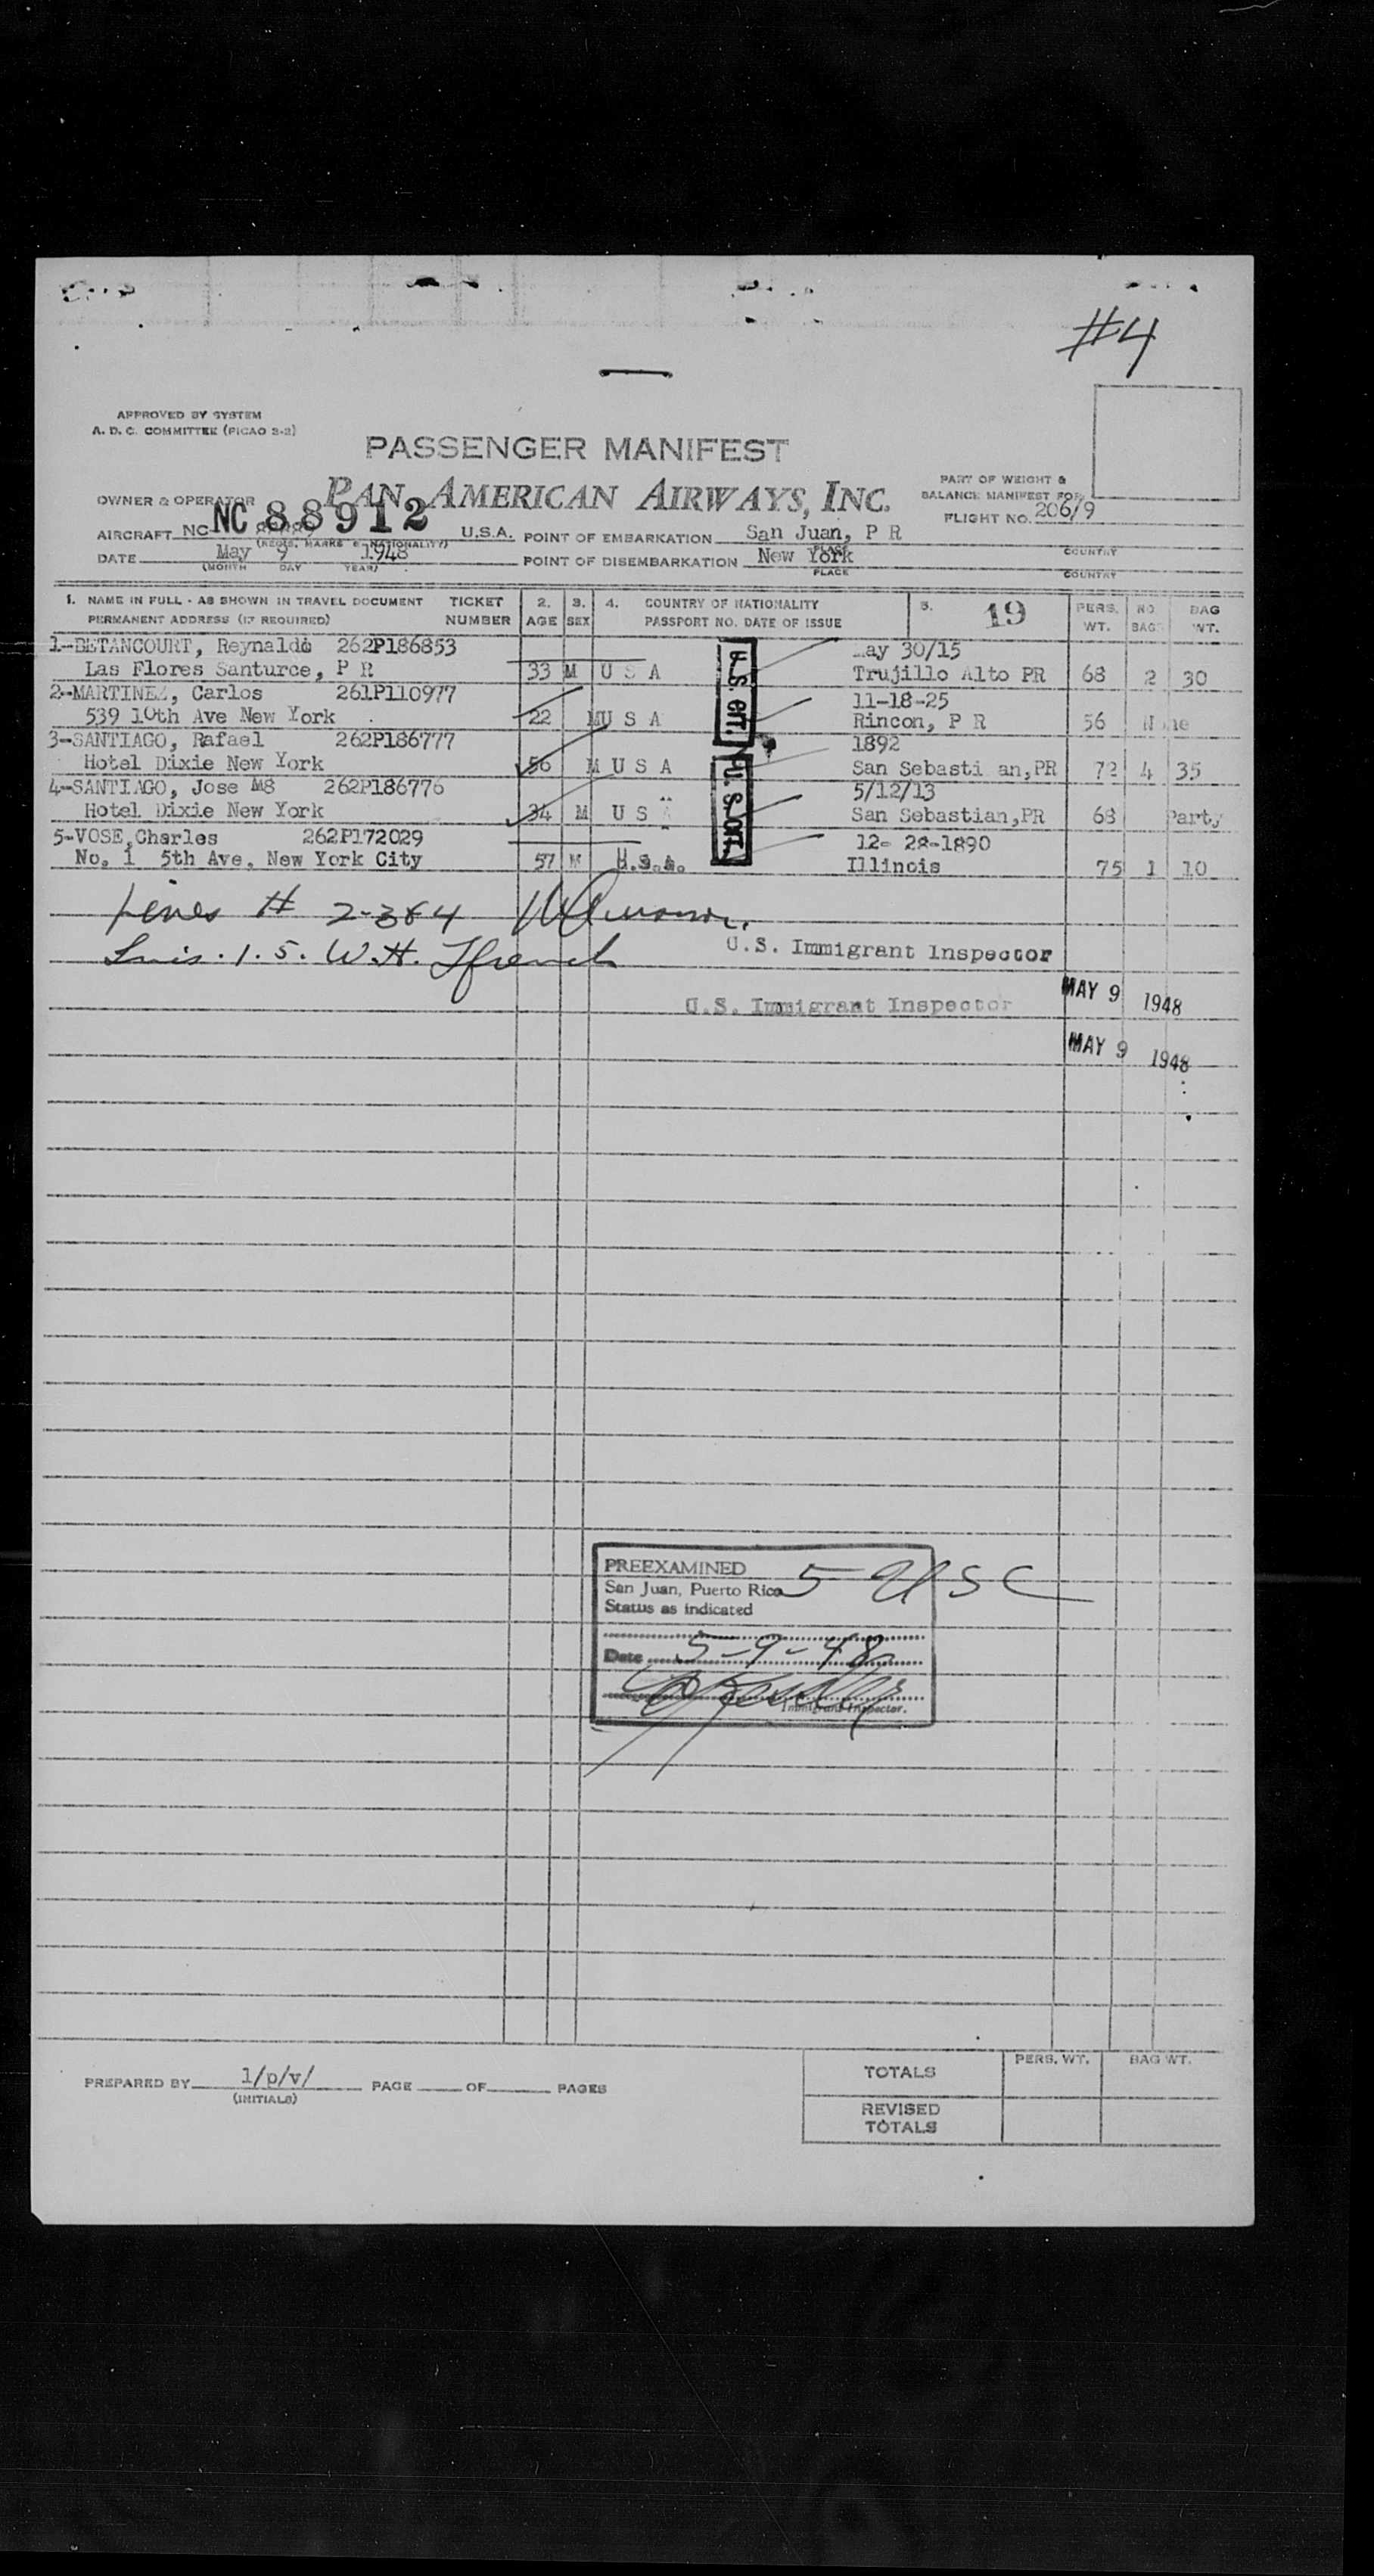 #4
APPROVED BY SYSTEM
A. D. C. COMMITTEE (PICAO 2-2)
PASSENGER MANIFEST
OWNER & OPERATOR PAN AMERICAN AIRWAYS, INC.
PART OF WEIGHT &
BALANCE MANIFEST FOR
FLIGHT NO. 206/9
AIRCRAFT NC NC 88912 U.S.A. POINT OF EMBARKATION San Juan, P R
(REGIS. MARKS & NATIONALITY) PLACE COUNTRY
DATE May 9 1948 POINT OF DISEMBARKATION New York
(MONTH DAY YEAR) PLACE COUNTRY
1. NAME IN FULL - AS SHOWN IN TRAVEL DOCUMENT TICKET 2. 3. 4. COUNTRY OF NATIONALITY 5. 19 PERS. NO. BAG
PERMANENT ADDRESS (IF REQUIRED) NUMBER AGE SEX PASSPORT NO. DATE OF ISSUE WT. BAGS WT.
1-BETANCOURT, Reynaldo 262P186853 May 30/15
Las Flores Santurce, P R 33 M U S A Trujillo Alto PR 68 2 30
2-MARTINEZ, Carlos 261P110977 11-18-25
539 10th Ave New York 22 M U S A Rincon, P R 56 None
3-SANTIAGO, Rafael 262P186777 1892
Hotel Dixie New York 56 M U S A San Sebasti an,PR 72 4 35
4-SANTIAGO, Jose MS 262P186776 5/12/13
Hotel Dixie New York 34 M U S A San Sebastian,PR 68 Party
5-VOSE,Charles 262P172029 12- 28-1890
No. 1 5th Ave, New York City 57 M U.S.A. Illinois 75 1 10
U.S. CIT.
U.S. CIT.
# 2-364
U.S. Immigrant Inspector
1. 5. W.H. Ffrench
U.S. Immigrant Inspector MAY 9 1948
MAY 9 1948
PREEXAMINED
San Juan, Puerto Rico 5 USC
Status as indicated
Date 5-9-48
Immigrant Inspector.
PREPARED BY 1/p/v/ PAGE OF PAGES
(INITIALS)
PERS. WT. BAG WT.
TOTALS
REVISED
TOTALS